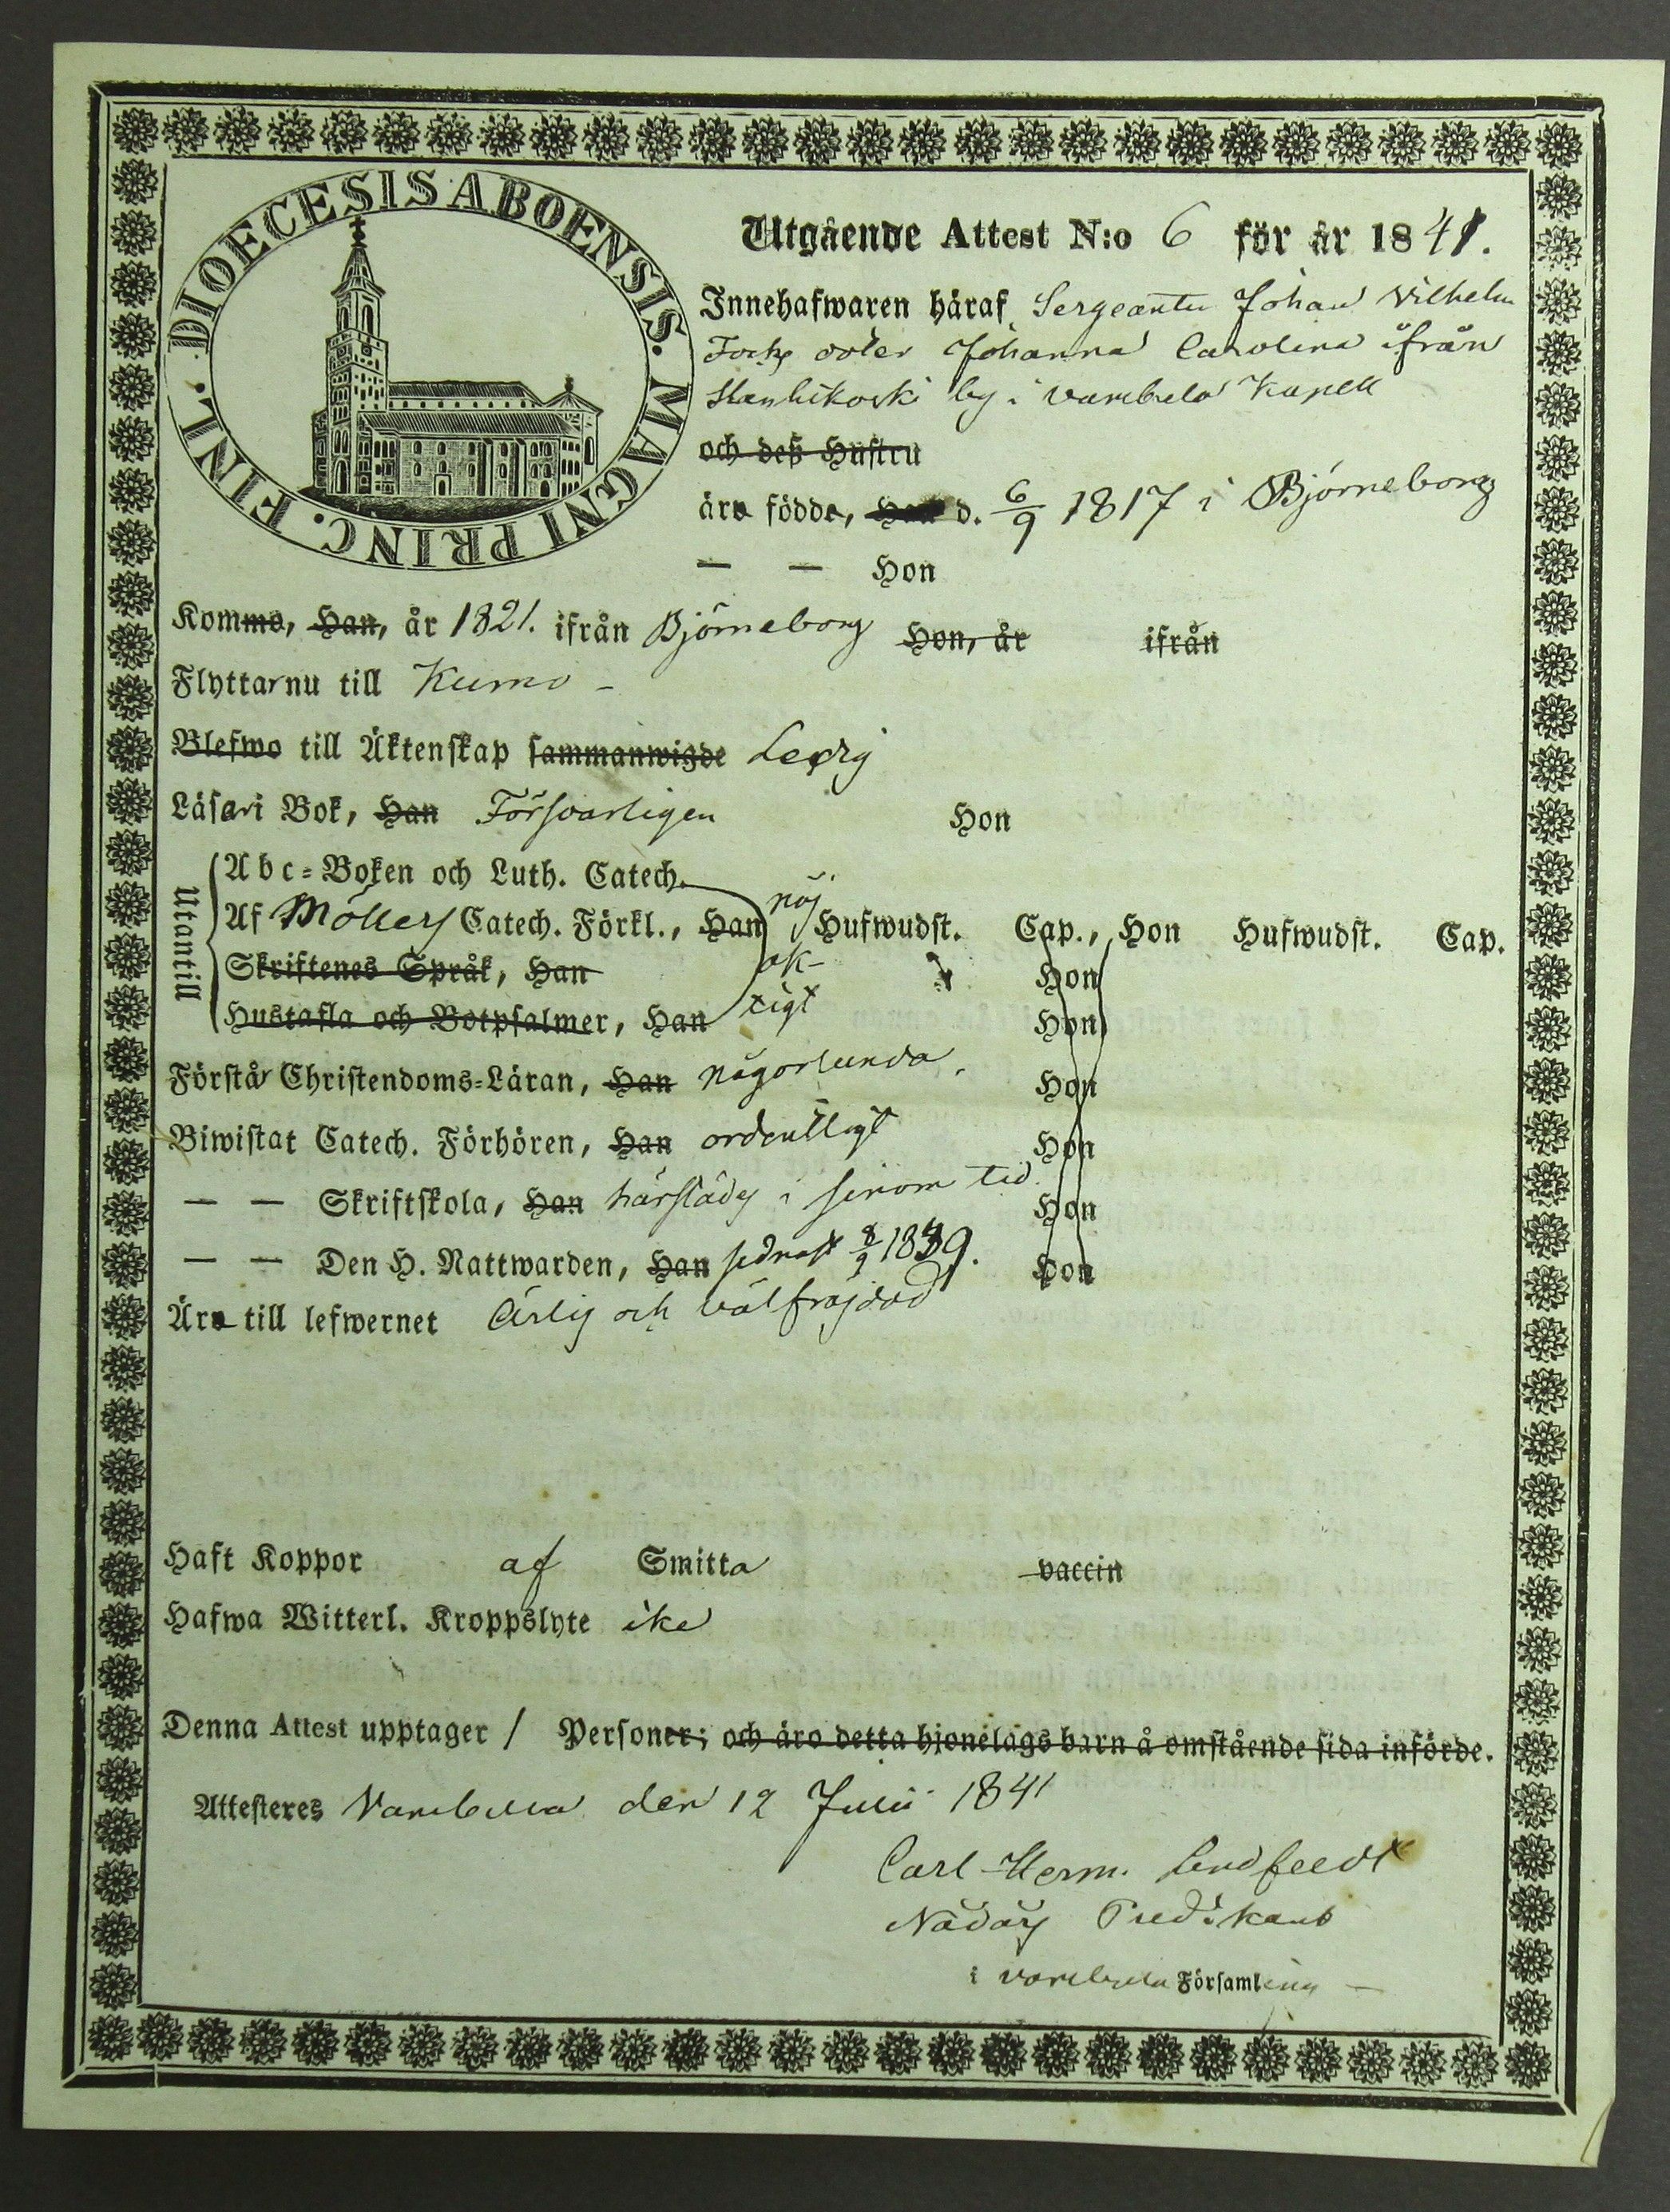 DIOECESIS ABOENSIS. MAGNI PRINC. FINL.
Utgående Attest N:o 6 för år 1841.
Innehafwaren häraf Sergeanten Johan Vilhelm
dotter Johanna Carolina ifrån
by i Kapell
och deß Hustru
äro födde, Han d. 6/9 1817 i Björneborg
— — Hon
Komme, Han, år 1821. ifrån Björneborg Hon, år ifrån
Flyttar nu till Kumo –
Blefwo till Äktenskap sammanwigde Ledig
Läsa i Bok, Han Försvarligen Hon
Utantill
Abc-Boken och Luth. Catech.
Af Möllers Catech. Förkl., Han nöj Hufwudst. Cap., Hon Hufwudst. Cap.
Skriftenes Språk, Han ak- Hon
Hustafla och Botpsalmer, Han tigt Hon
Förstår Christendoms-Läran, Han någorlunda. Hon
Biwistat Catech. Förhören, Han ordentligt Hon
— — Skriftskola, Han härstädes i sinom tid. Hon
— — Den H. Nattwarden, Han sednast 1839. Hon
Äro till lefwernet Ärlig och välfräjdad
Haft Koppor af Smitta vaccin
Hafwa Witterl. Kroppslyte ike
Denna Attest upptager 1 Personer; och äro detta hjonelags barn å omstående sida införde.
Attesteres den 12 Julii 1841
Carl Herm.
Nådårs Predikant
i Församling –